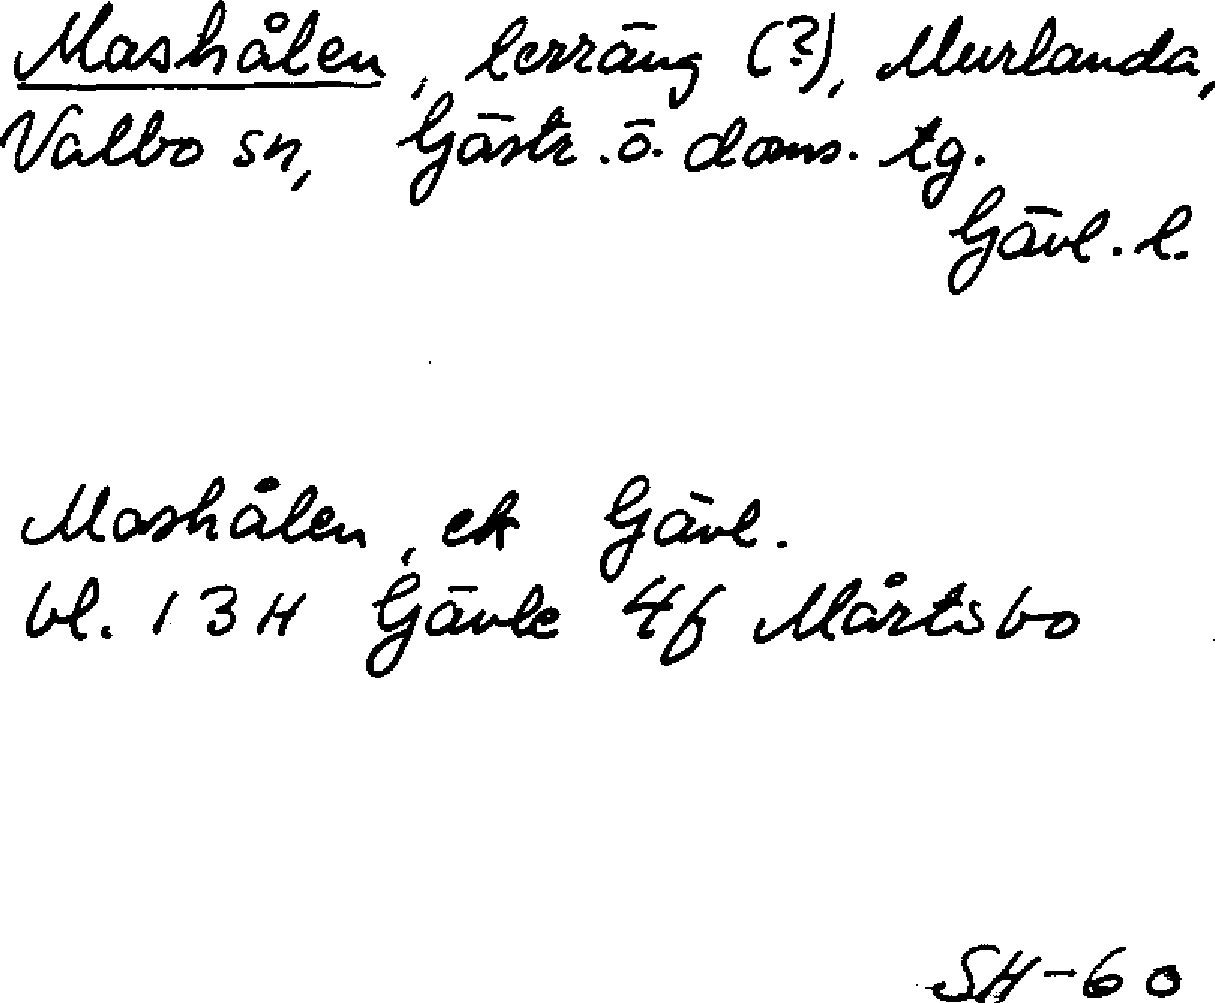 Mashålen, lerräng (?), Murlanda,
Valbo sn, Gästr. ö. doms. tg.
Gävl. l.
Mashålen, ek Gävl.
bl. 13H Gävle 4f Mårtsbo
SH-60